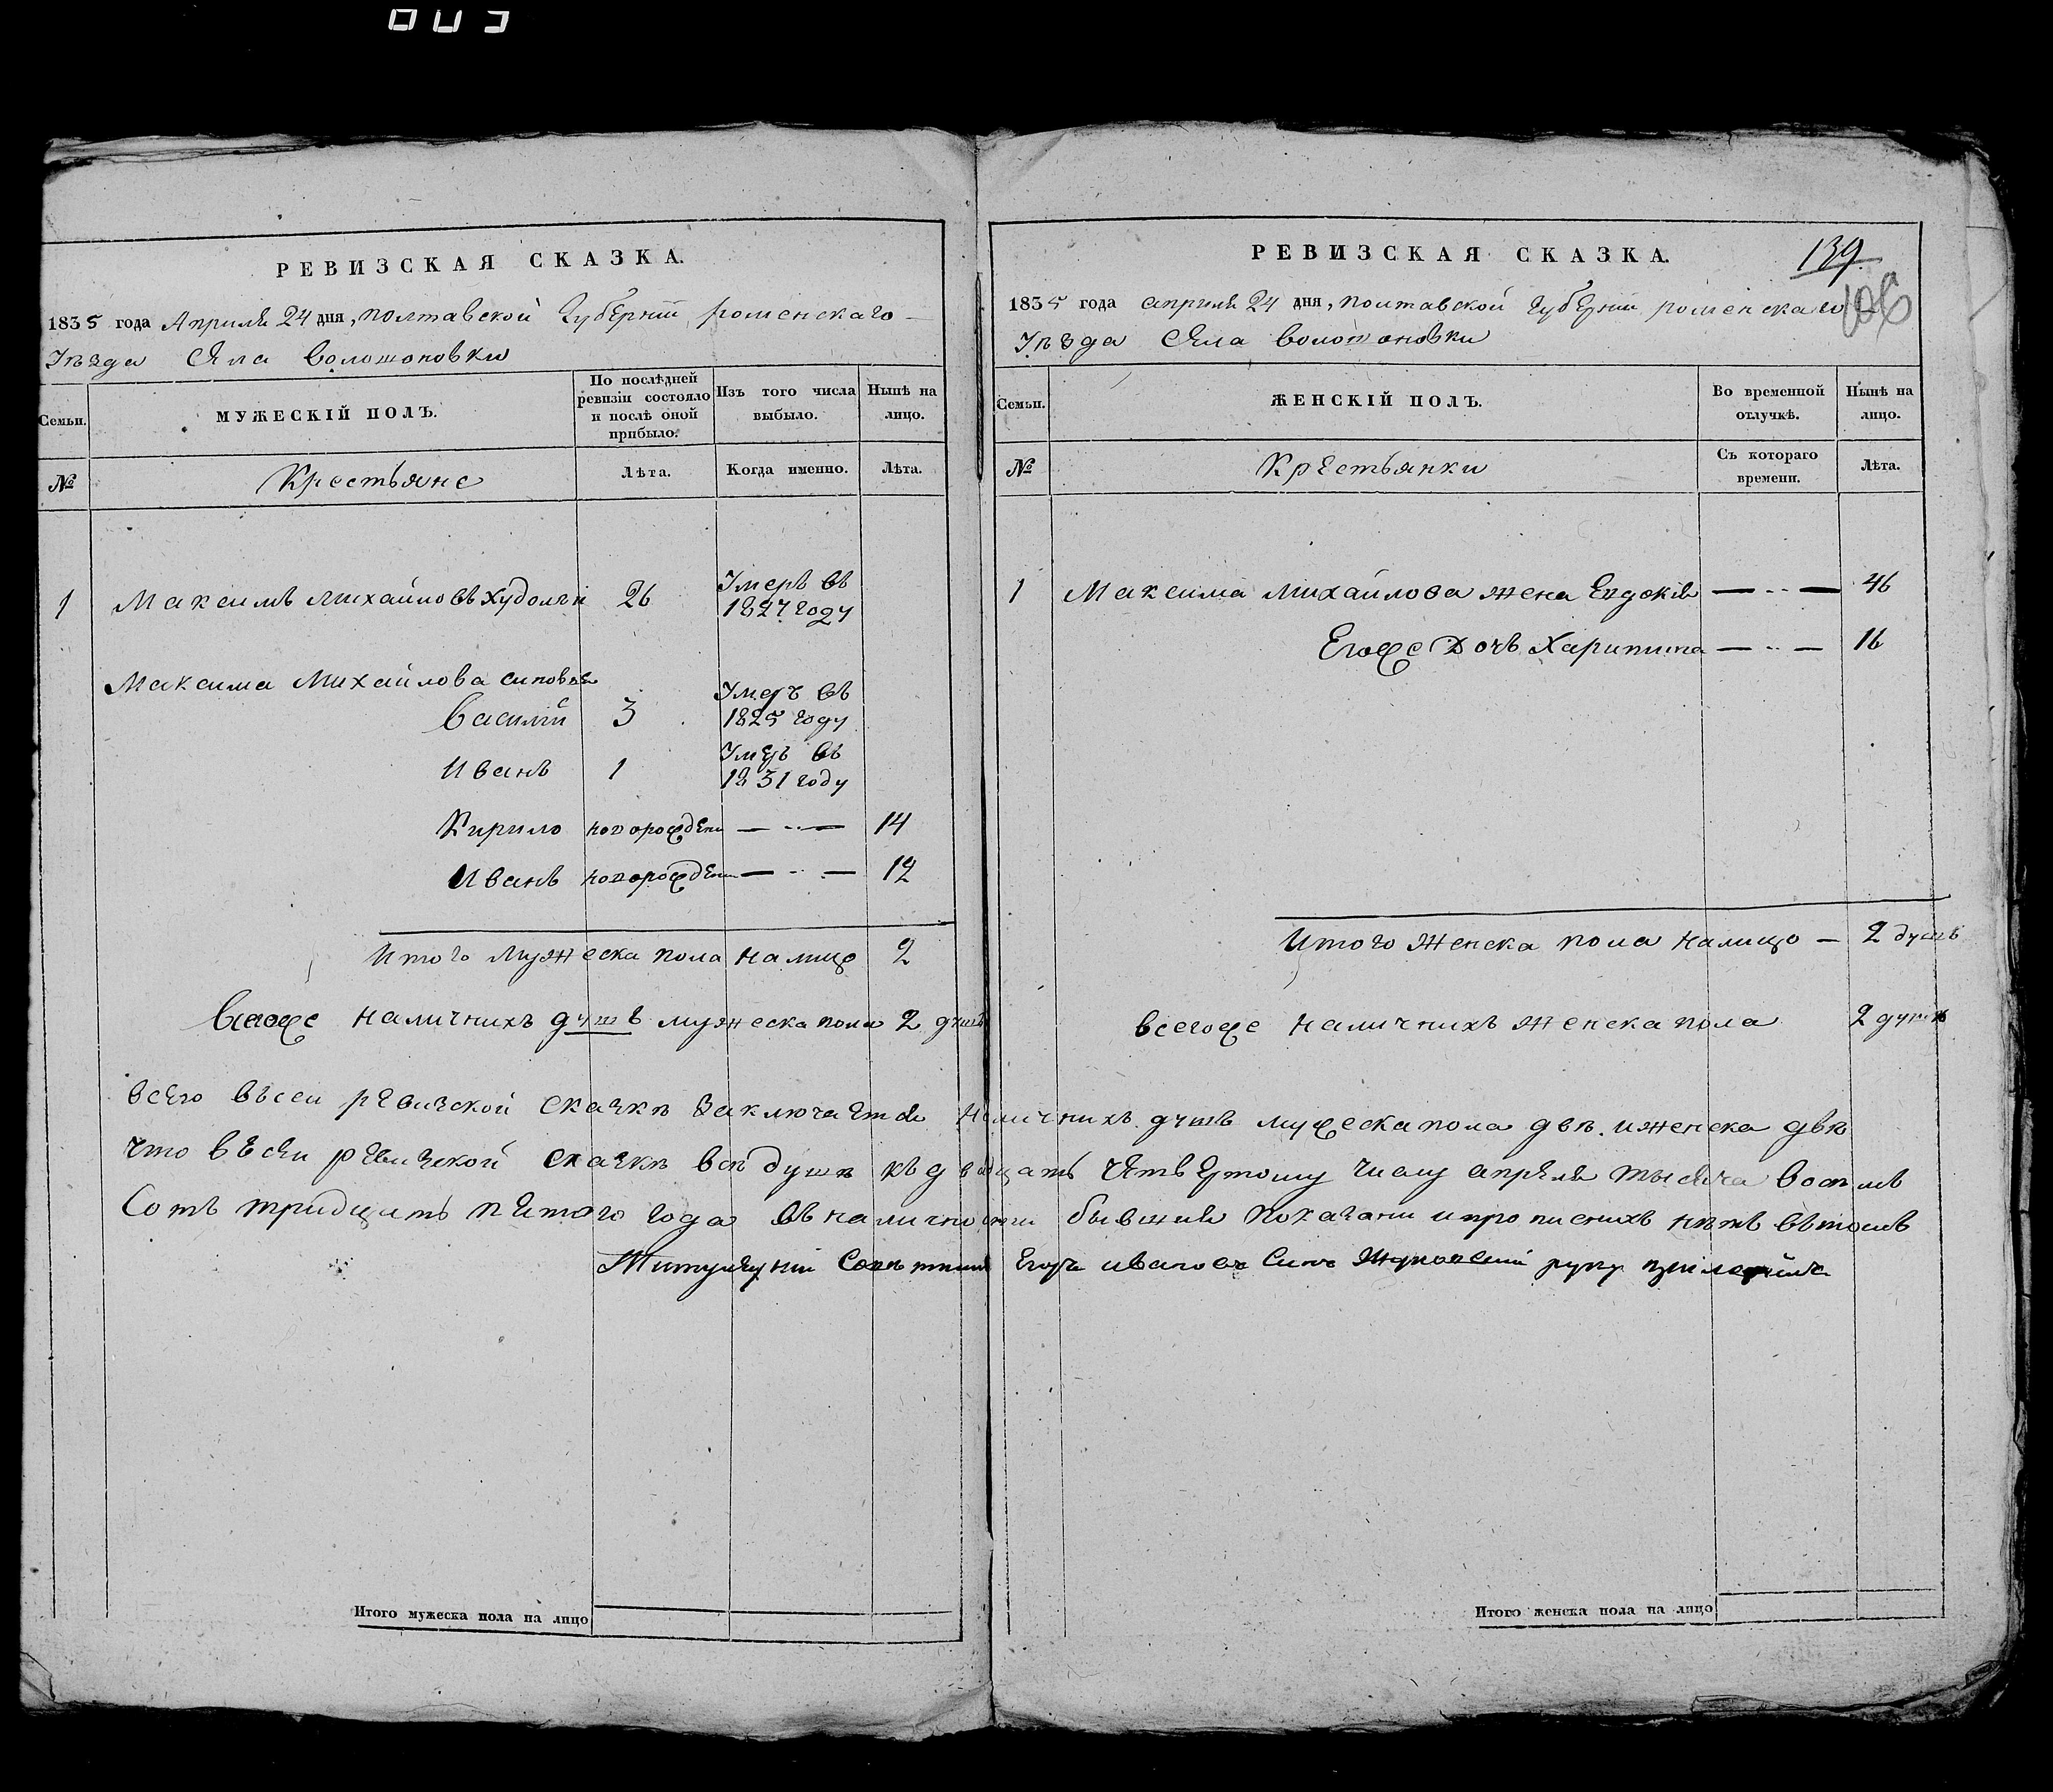 РЕВИЗСКАЯ СКАЗКА.
1835 года Априля 24 дня, полтавской Губернии роменскаго
Уѣзда Села волошоновки
Семьи.
МУЖЕСКІЙ ПОЛЪ.
По послѣдней ревизіи состояло и послѣ оной прибыло.
Изъ того числа выбыло.
Нынѣ на лицо.
№
Крестьяне
Лѣта.
Когда именно.
Лѣта.
1 Максимъ Михайловъ Худолѣй 26 Умеръ въ 1827 году
Максима Михайлова синовья
Василій 3 Умеръ въ 1825 году
Иванъ 1 Умеръ въ 1831 году
Кирило новорожденн 14
Иванъ новорожденн 12
Итого Мужеска пола налицо 2
Всегоже наличнихъ душъ мужеска пола 2 душъ
РЕВИЗСКАЯ СКАЗКА.
139.
1835 года априля 24 дня, полтавской Губернии роменскаго
Уѣзда Села волошоновки
Семьи.
ЖЕНСКІЙ ПОЛЪ.
Во временной отлучкѣ.
Нынѣ на лицо.
№
Крестьянки
Съ котораго времени.
Лѣта.
1 Максима Михайлова жена Евдокія 46
Егоже Дочь Харитина 16
Итого Женска пола налицо — 2 душъ
всегоже наличнихъ Женска пола 2 душъ
всего въсей ревизской сказкѣ заключается наличнихъ душъ мужеска пола двѣ. иженска двѣ
что въсей ревизской сказкѣ всѣ душѣ къ двадцать четвертому числу апреля тысяча восемъ
Сотъ тридцать пятого года въналичности бывшия показани ипрописнихъ нѣтъ вътомъ
Титулярный Советникъ Егоръ ивановъ Синъ руку приложилъ
Итого мужеска пола на лицо
Итого женска пола на лицо